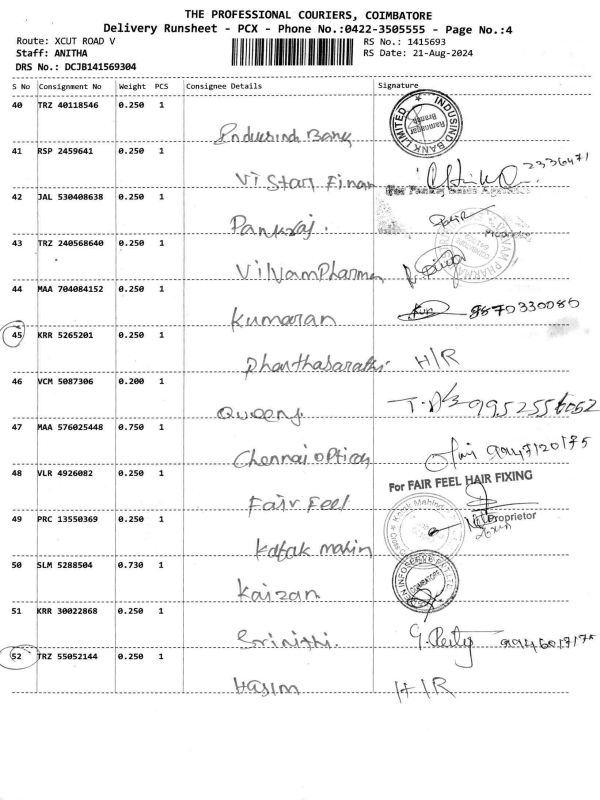 THE PROFESSIONAL COURIERS, COIMBATORE
Delivery Runsheet - PCX - Phone No.:0422-3505555 - Page No.:4
Route: XCUT ROAD V RS No.: 1415693
Staff: ANITHA RS Date: 21-Aug-2024
DRS No.: DCJB141569304
S No Consignment No Weight PCS Consignee Details Signature
40 TRZ 40118546 0.250 1
Indusind Bank
INDUSIND BANK LIMITED
Ramnagar Branch
41 RSP 2459641 0.250 1
Vistar Finan 2336471
42 JAL 530408638 0.250 1
For Pankaj Sales Agencies
Pankaj.
43 TRZ 240568640 0.250 1
Vilvam Pharma
44 MAA 704084152 0.250 1
Kumaran 9870330080
45 KRR 5265201 0.250 1
Pharthasarathi H/R
46 VCM 5087306 0.200 1
Queens 9952556062
47 MAA 576025448 0.750 1
Chennai optics
48 VLR 4926082 0.250 1
For FAIR FEEL HAIR FIXING
Fair Feel
Proprietor
49 PRC 13550369 0.250 1
Kotak Mahin
50 SLM 5288504 0.730 1
COIMBATORE
Kaizan
51 KRR 30022868 0.250 1
Srinithi.
52 TRZ 55052144 0.250 1
Hasim H/R